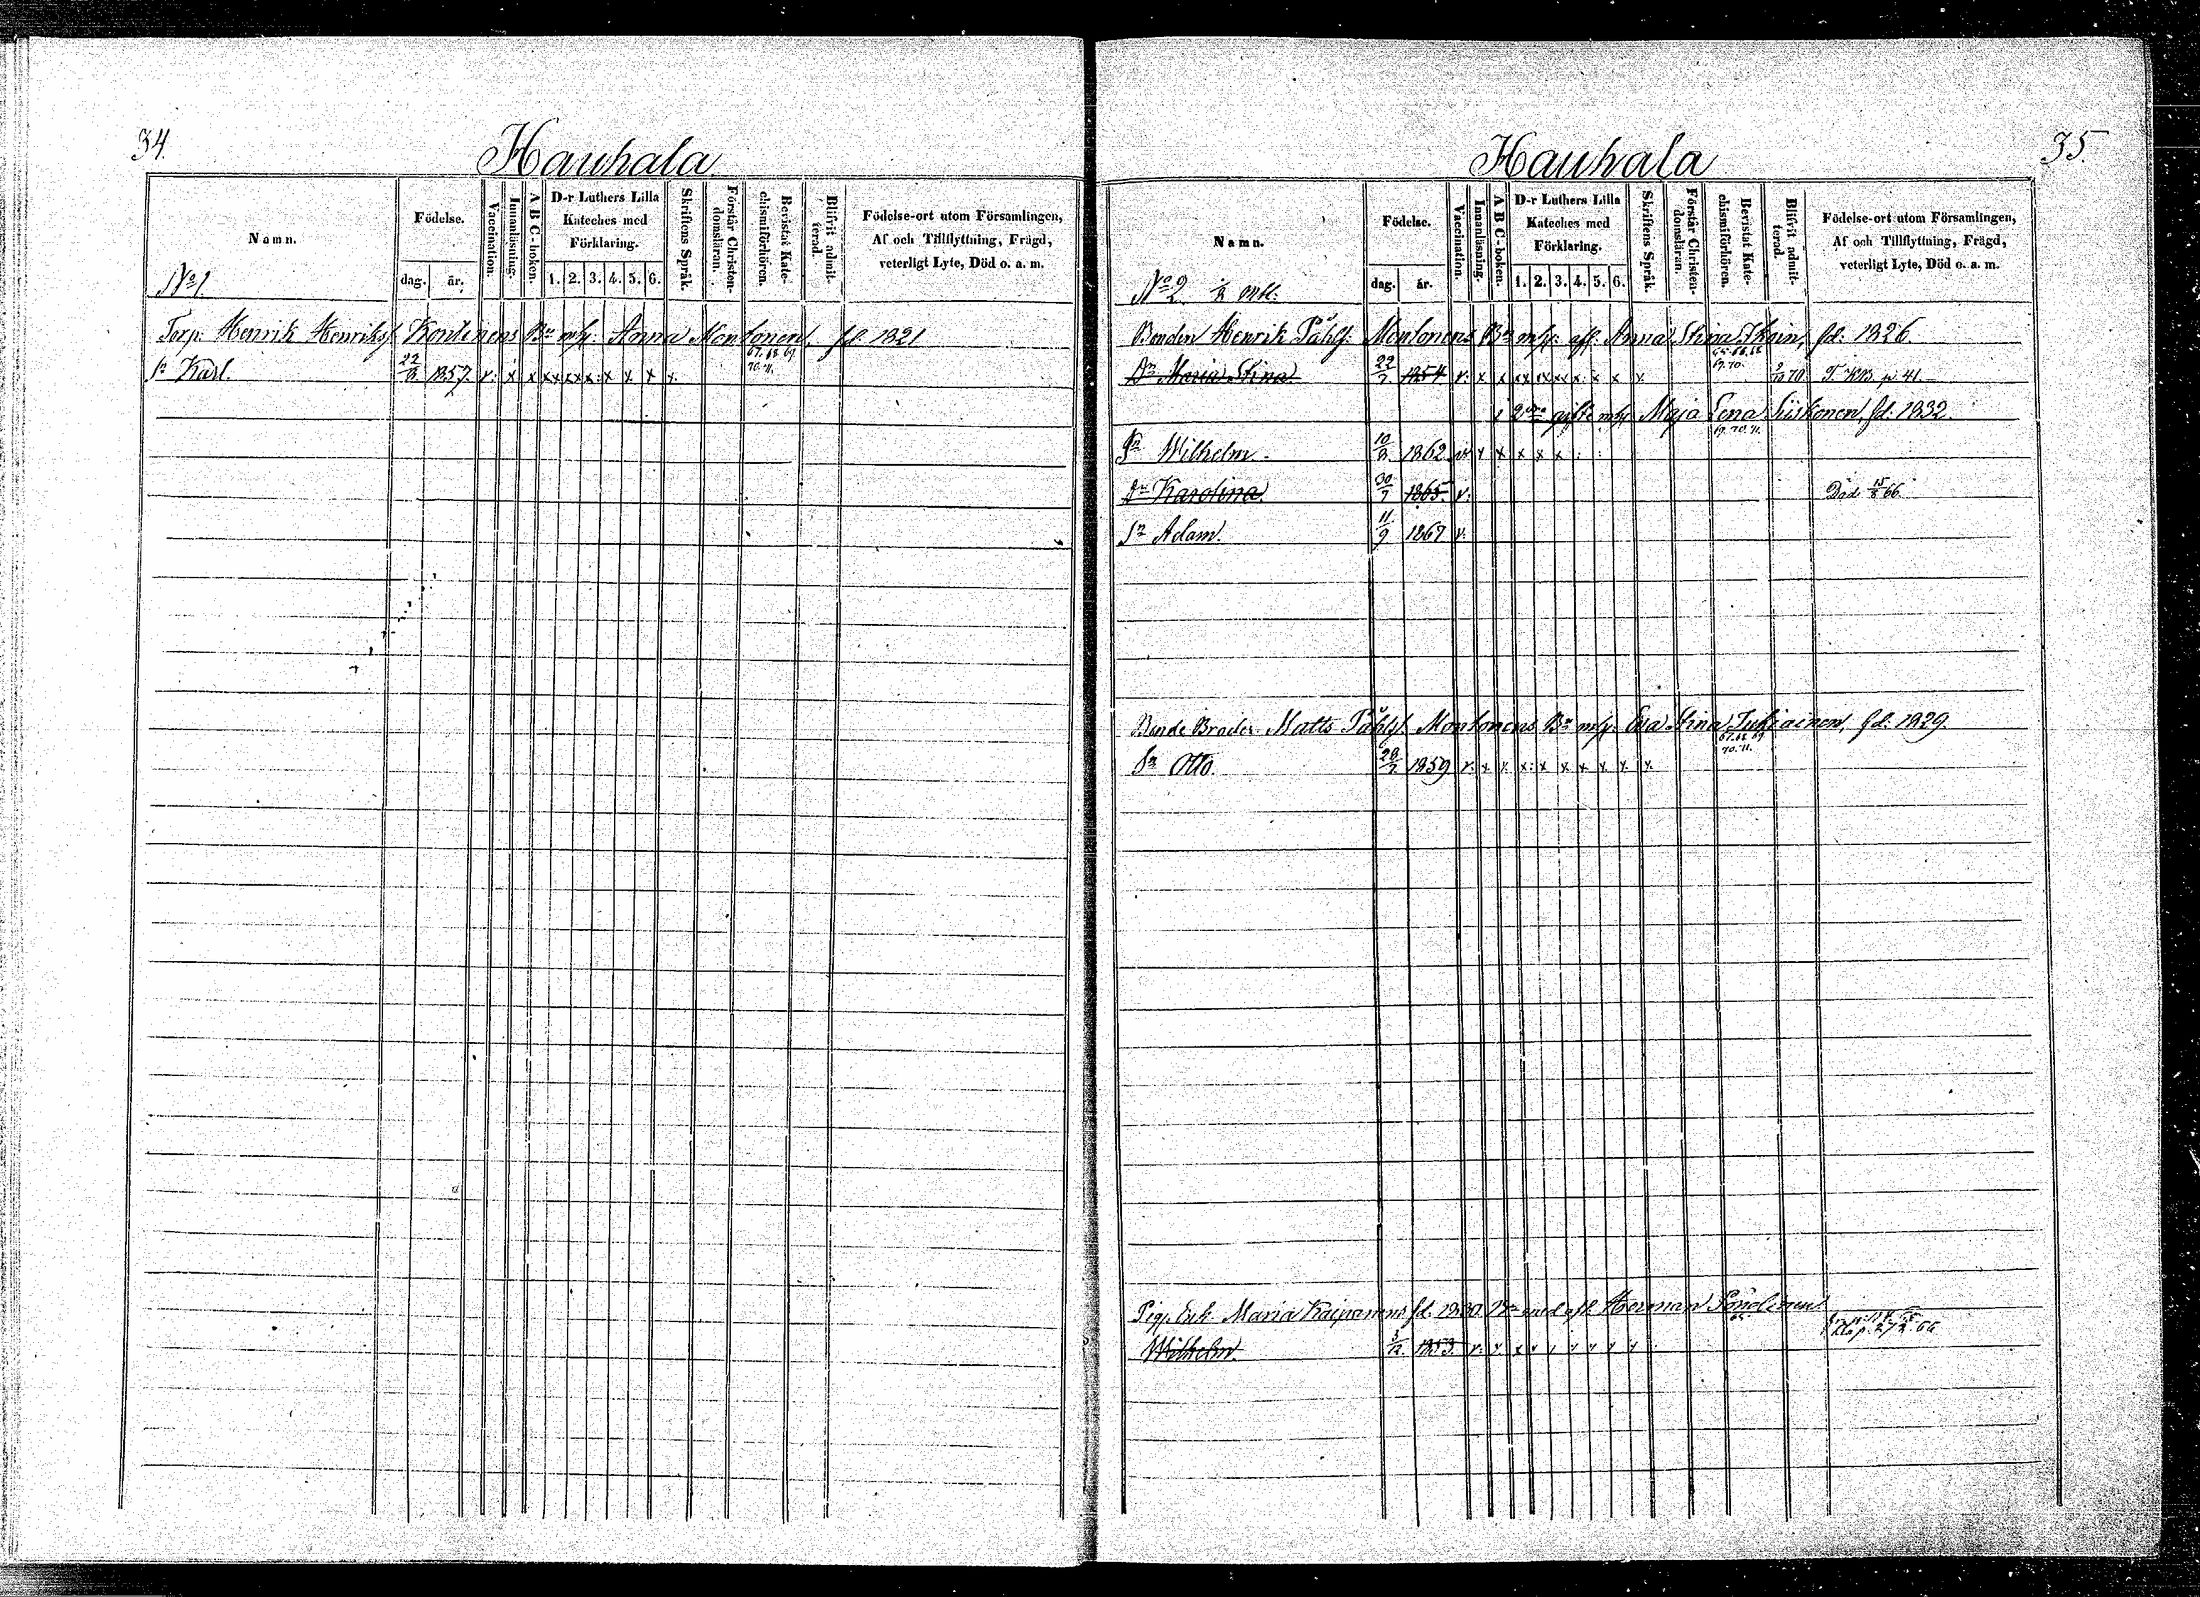 34.
Hauhala
Namn.
Födelse.
dag. år.
Vaccination.
Innanläsning.
A B C-boken.
D-r Luthers Lilla
Kateches med
Förklaring.
1. 2. 3. 4. 5. 6.
Skriftens Språk.
Förstår Christen-
domsläran.
Bevistat Kate-
chismiförhören.
Blifvit admit-
terad.
Födelse-ort utom Församlingen,
Af och Tillflyttning, Frägd,
veterligt Lyte, Död o. a. m.
No 1.
Torp. Henrik Henriksf. Kontinens Bn m/h: Anna Montonen, fd. 1821
67. 68 69.
70. 71.
Sn Karl. 22/8 1857. v. x x xx xx x: x x x x.
35.
Hauhala
Namn.
Födelse.
dag. år.
Vaccination.
Innanläsning.
A B C-boken.
D-r Luthers Lilla
Kateches med
Förklaring.
1. 2. 3. 4. 5. 6.
Skriftens Språk.
Förstår Christen-
domsläran.
Bevistat Kate-
chismiförhören.
Blifvit admit-
terad.
Födelse-ort utom Församlingen,
Af och Tillflyttning, Frägd,
veterligt Lyte, Död o. a. m.
No 2.
Bonden Henrik Påhlf. Montonens Bn m/h: afl. Anna Stina Ikoin, fd: 1826.
69. 70.
Dr Maria Stina 22/7 1854 v. x x xx xx xx x. x x x. 70 T. KB. p 41.
i 2dra gifte m/h Maja Lena Siiskonen, fd: 1832.
69. 70. 71.
Sn Wilhelm. 10/8 1862 v x x x x x
Dr Karolina. 30/7 1865 v. Död 15/8 66.
Sn Adam. 11/9 1867 v.
Bonde Broder Matts Påhlsf. Montonens Bn m/h: Eva Stina Juhiainen, fd: 1829.
67. 68 69
70. 71.
Sn Otto. 28/7 1859 v. x x. x: x x x x x. x.
Pig. Enk. Maria Kaipanens fd. 1830. Bn med afl. Herman
65.
Wilhelm. 3/12 1853. v. v. x v v v v v v